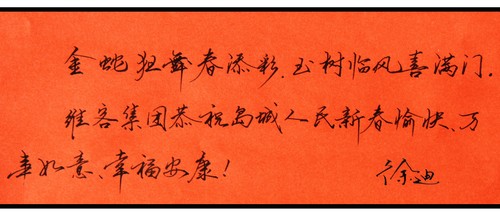 金蛇狂舞春添彩,玉树临风喜满门.
维客集团恭祝岛城人民新春愉快、万
事如意、幸福安康!
徐迪